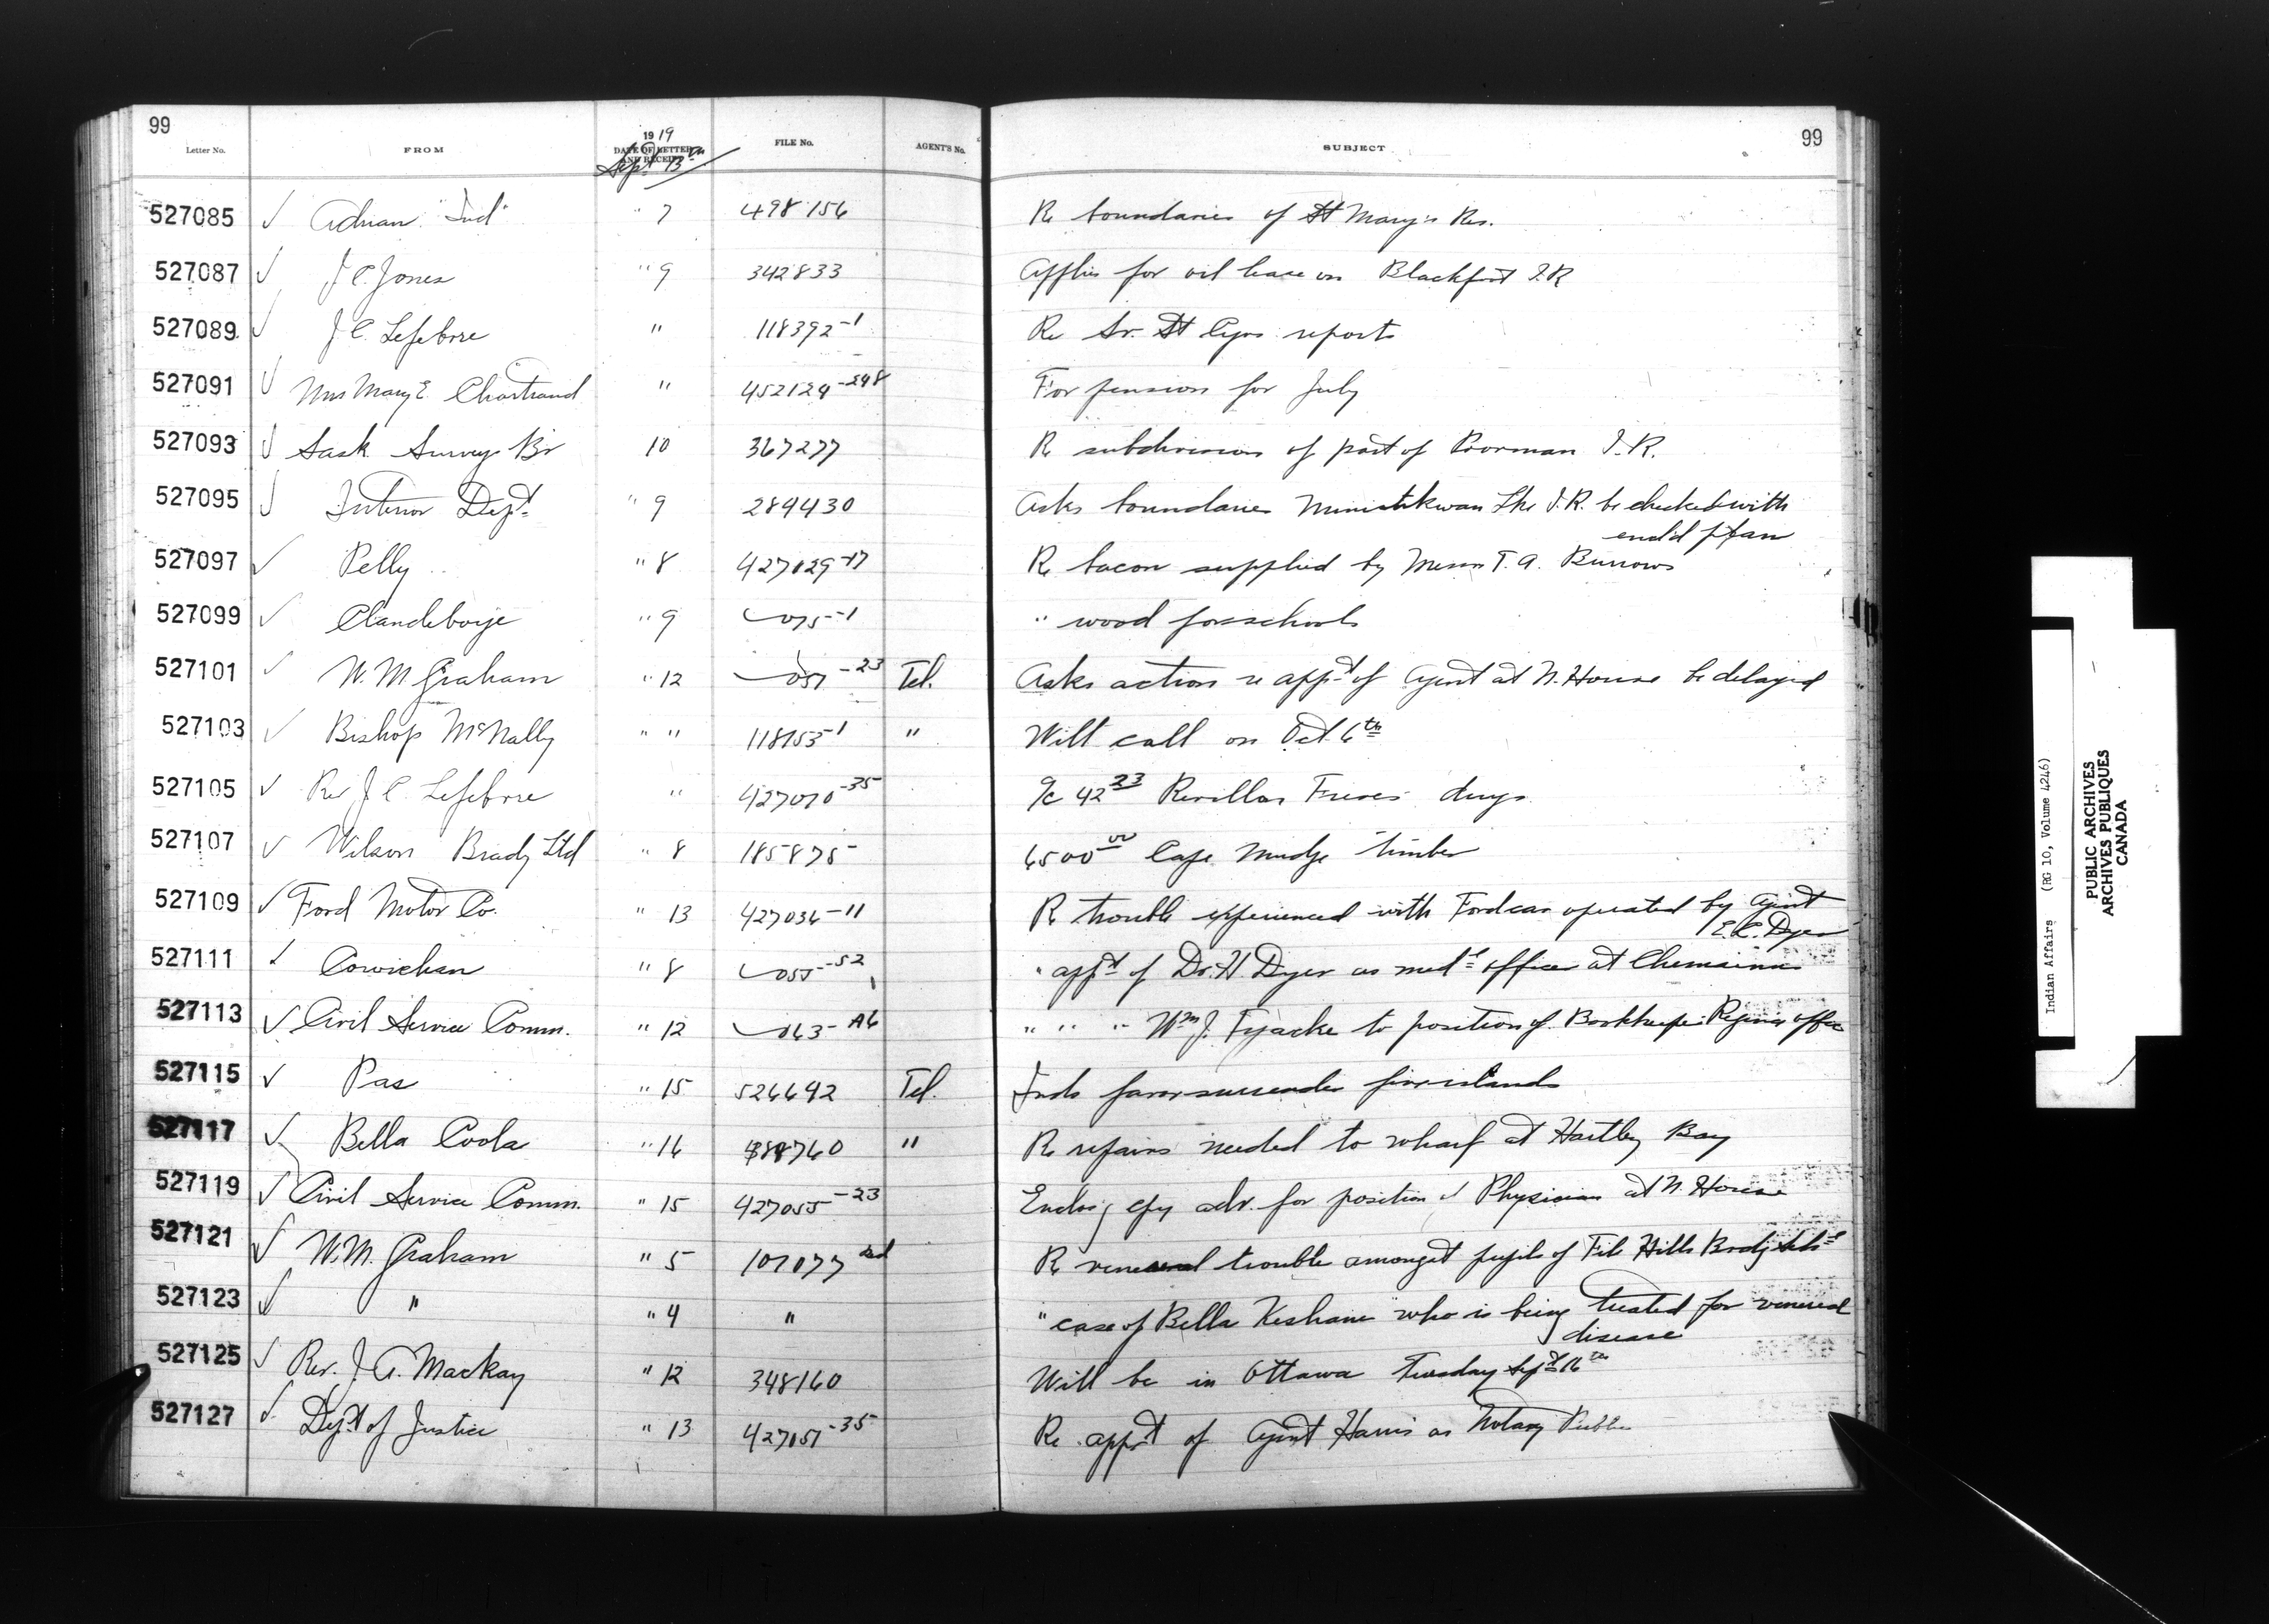 99 99
Letter No. FROM 1919 DATE OF LETTER AND RECEIPT FILE No. AGENT'S No. SUBJECT
Sept 13th
527085 ✓ Adrian "Ind" " 7 498156 Re boundaries of St Mary's Res.
527087 ✓ J C. Jones " 9 342833 Applies for oil lease on Blackfoot I.R
527089 ✓ J C. Lefebvre " 118392-1 Re St reports
527091 ✓ Mrs Mary E. Chartrand " 452124-248 For pension for July
527093 ✓ Sask Surveys Br 10 367277 Re subdivision of part of Poorman I.R.
527095 ✓ Interior Dept. " 9 289430 Asks boundaries Ministikwan Lke I.R. be checked with
encl'd plan
527097 ✓ Pelly " 8 427029-17 Re bacon supplied by Messrs T. A. Burrows
527099 ✓ Clandeboye " 9 075-1 " wood for schools
527101 ✓ W. M. Graham " 12 051-23 Tel. Asks action re appt of Agent at N. House be delayed
527103 ✓ Bishop McNally " " 118153-1 " Will call on Oct. 6th
527105 ✓ Rev J. C. Lefebvre " 427070-35 a/c 42 23 Revillon Freres drugs
527107 ✓ Wilson Brady Ltd " 8 185875 6500 00 Cape Mudge timber
527109 ✓ Ford Motor Co. " 13 427036-11 Re trouble experienced with Ford car operated by Agent
E. C. Dyer
527111 ✓ Cowichan " 8 055-52 " appt of Dr. H. Dyer as medl officer at Chemainus
527113 ✓ Civil Service Comm. " 12 063-A6 " " " Wm J. Tyacke to position of Bookkeeper Regina office
527115 ✓ Pas " 15 526692 Tel. Inds favor surrender five islands
527117 ✓ Bella Coola " 16 388760 " Re repairs needed to wharf at Hartley Bay
527119 ✓ Civil Service Comm. " 15 427055-23 Enclosg cpy adv. for position of Physician at N. House
527121 ✓ W. M. Graham " 5 107077 Re venereal trouble amongst pupils of File Hills Brdg schl
527123 ✓ " " 4 " " case of Bella Keshane who is being treated for venereal
disease
527125 ✓ Rev. J. A. Mackay " 12 348160 Will be in Ottawa Tuesday Sept 16th
527127 ✓ Dept of Justice " 13 427051-35 Re appt of Agent Harris as Notary Public
Indian Affairs (RG 10, Volume 4246)
PUBLIC ARCHIVES
ARCHIVES PUBLIQUES
CANADA